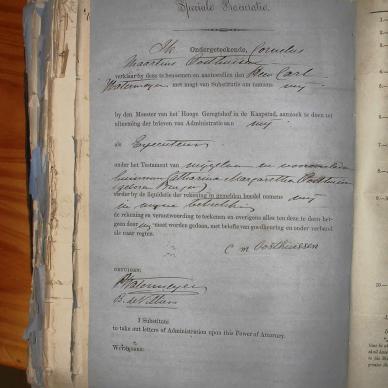 Speciale Procuratie.
Ik Ondergeteekende, Cornelus
Maartins Oosthuisen
verklaar by deze te benoemen en aantestellen den Heer Carl
Watermeyer met magt van Substitutie om namens my
by den Meester van het Hooge Geregtshof in de Kaapstad, aanzoek te doen tot
uitneeming der brieven van Administratie aan my
als Executeur
onder het Testament van myzelven en
huisvrouw Catharina Margaretha Oosthuisen
(geboren
verder by de liquidatie der rekening in gemelden boedel namens my
in myne betrekking
de rekening en verantwoording te teekenen en overigens alles ten deze te doen het-
geen door my moet worden gedaan, met belofte van goedkeuring en onder verband
als naar regten.
C M Oosthuissen
GETUIGEN:
Watermeyer
B. de Villiers
I Substitute
to take out letters of Administration upon this Power of Attorney.
WITNESSES: